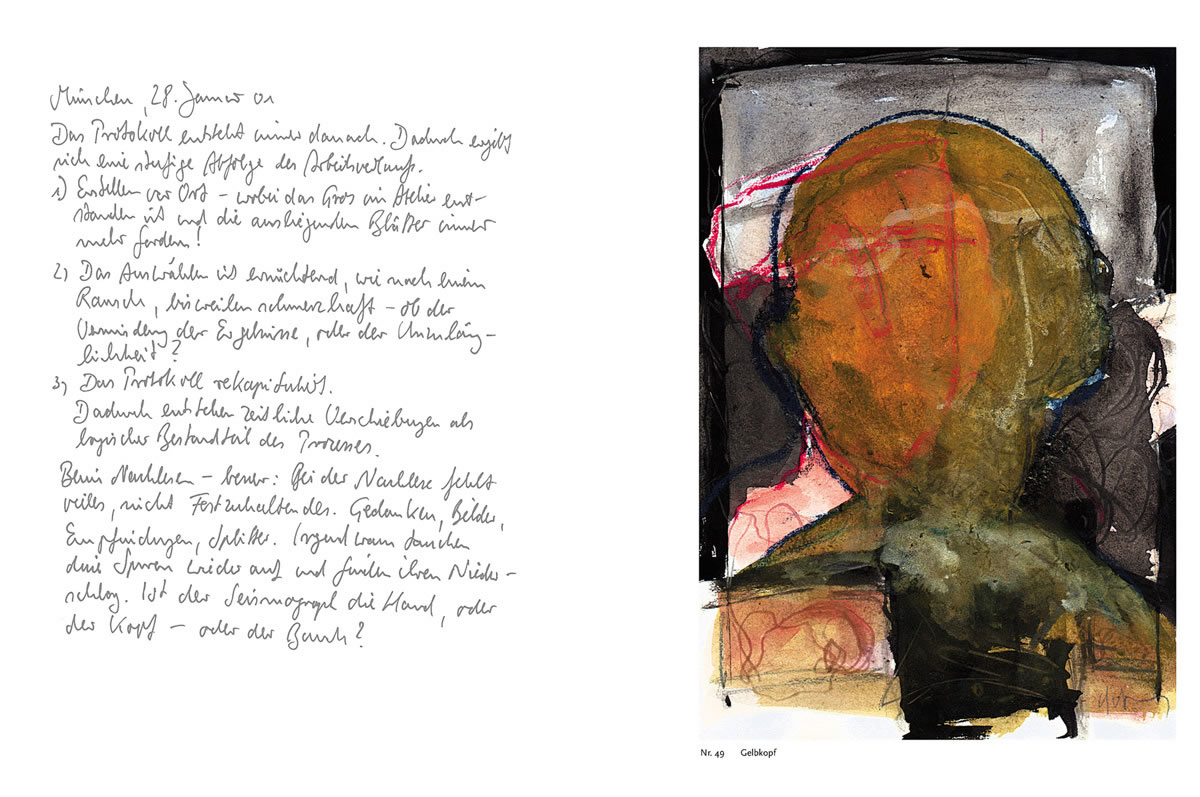 München, 28. Januar 01
Das Protokoll entsteht immer danach. Dadurch ergibt
sich eine stufige Abfolge des Arbeitsverlaufs.
1) Erstellen vor Ort – wobei das Gros im Atelier ent-
standen ist und die ausliegenden Blätter immer
mehr fordern!
2) Das Auswählen ist ernüchternd, wie nach einem
Rausch, bisweilen schmerzhaft – ob der
Verminderung der Ergebnisse, oder der Unzuläng-
lichkeit?
3) Das Protokoll rekapituliert.
Dadurch entstehen zeitliche Verschiebungen als
logischer Bestandteil des Prozesses.
Beim Nachlesen – besser: Bei der Nachlese fehlt
vieles, nicht Festzuhaltendes. Gedanken, Bilder,
Empfindungen, Splitter. Irgendwann tauchen
diese Spuren wieder auf und finden ihren Nieder-
schlag. Ist der Seismograph die Hand, oder
der Kopf – oder der Bauch?
Nr. 49 Gelbkopf